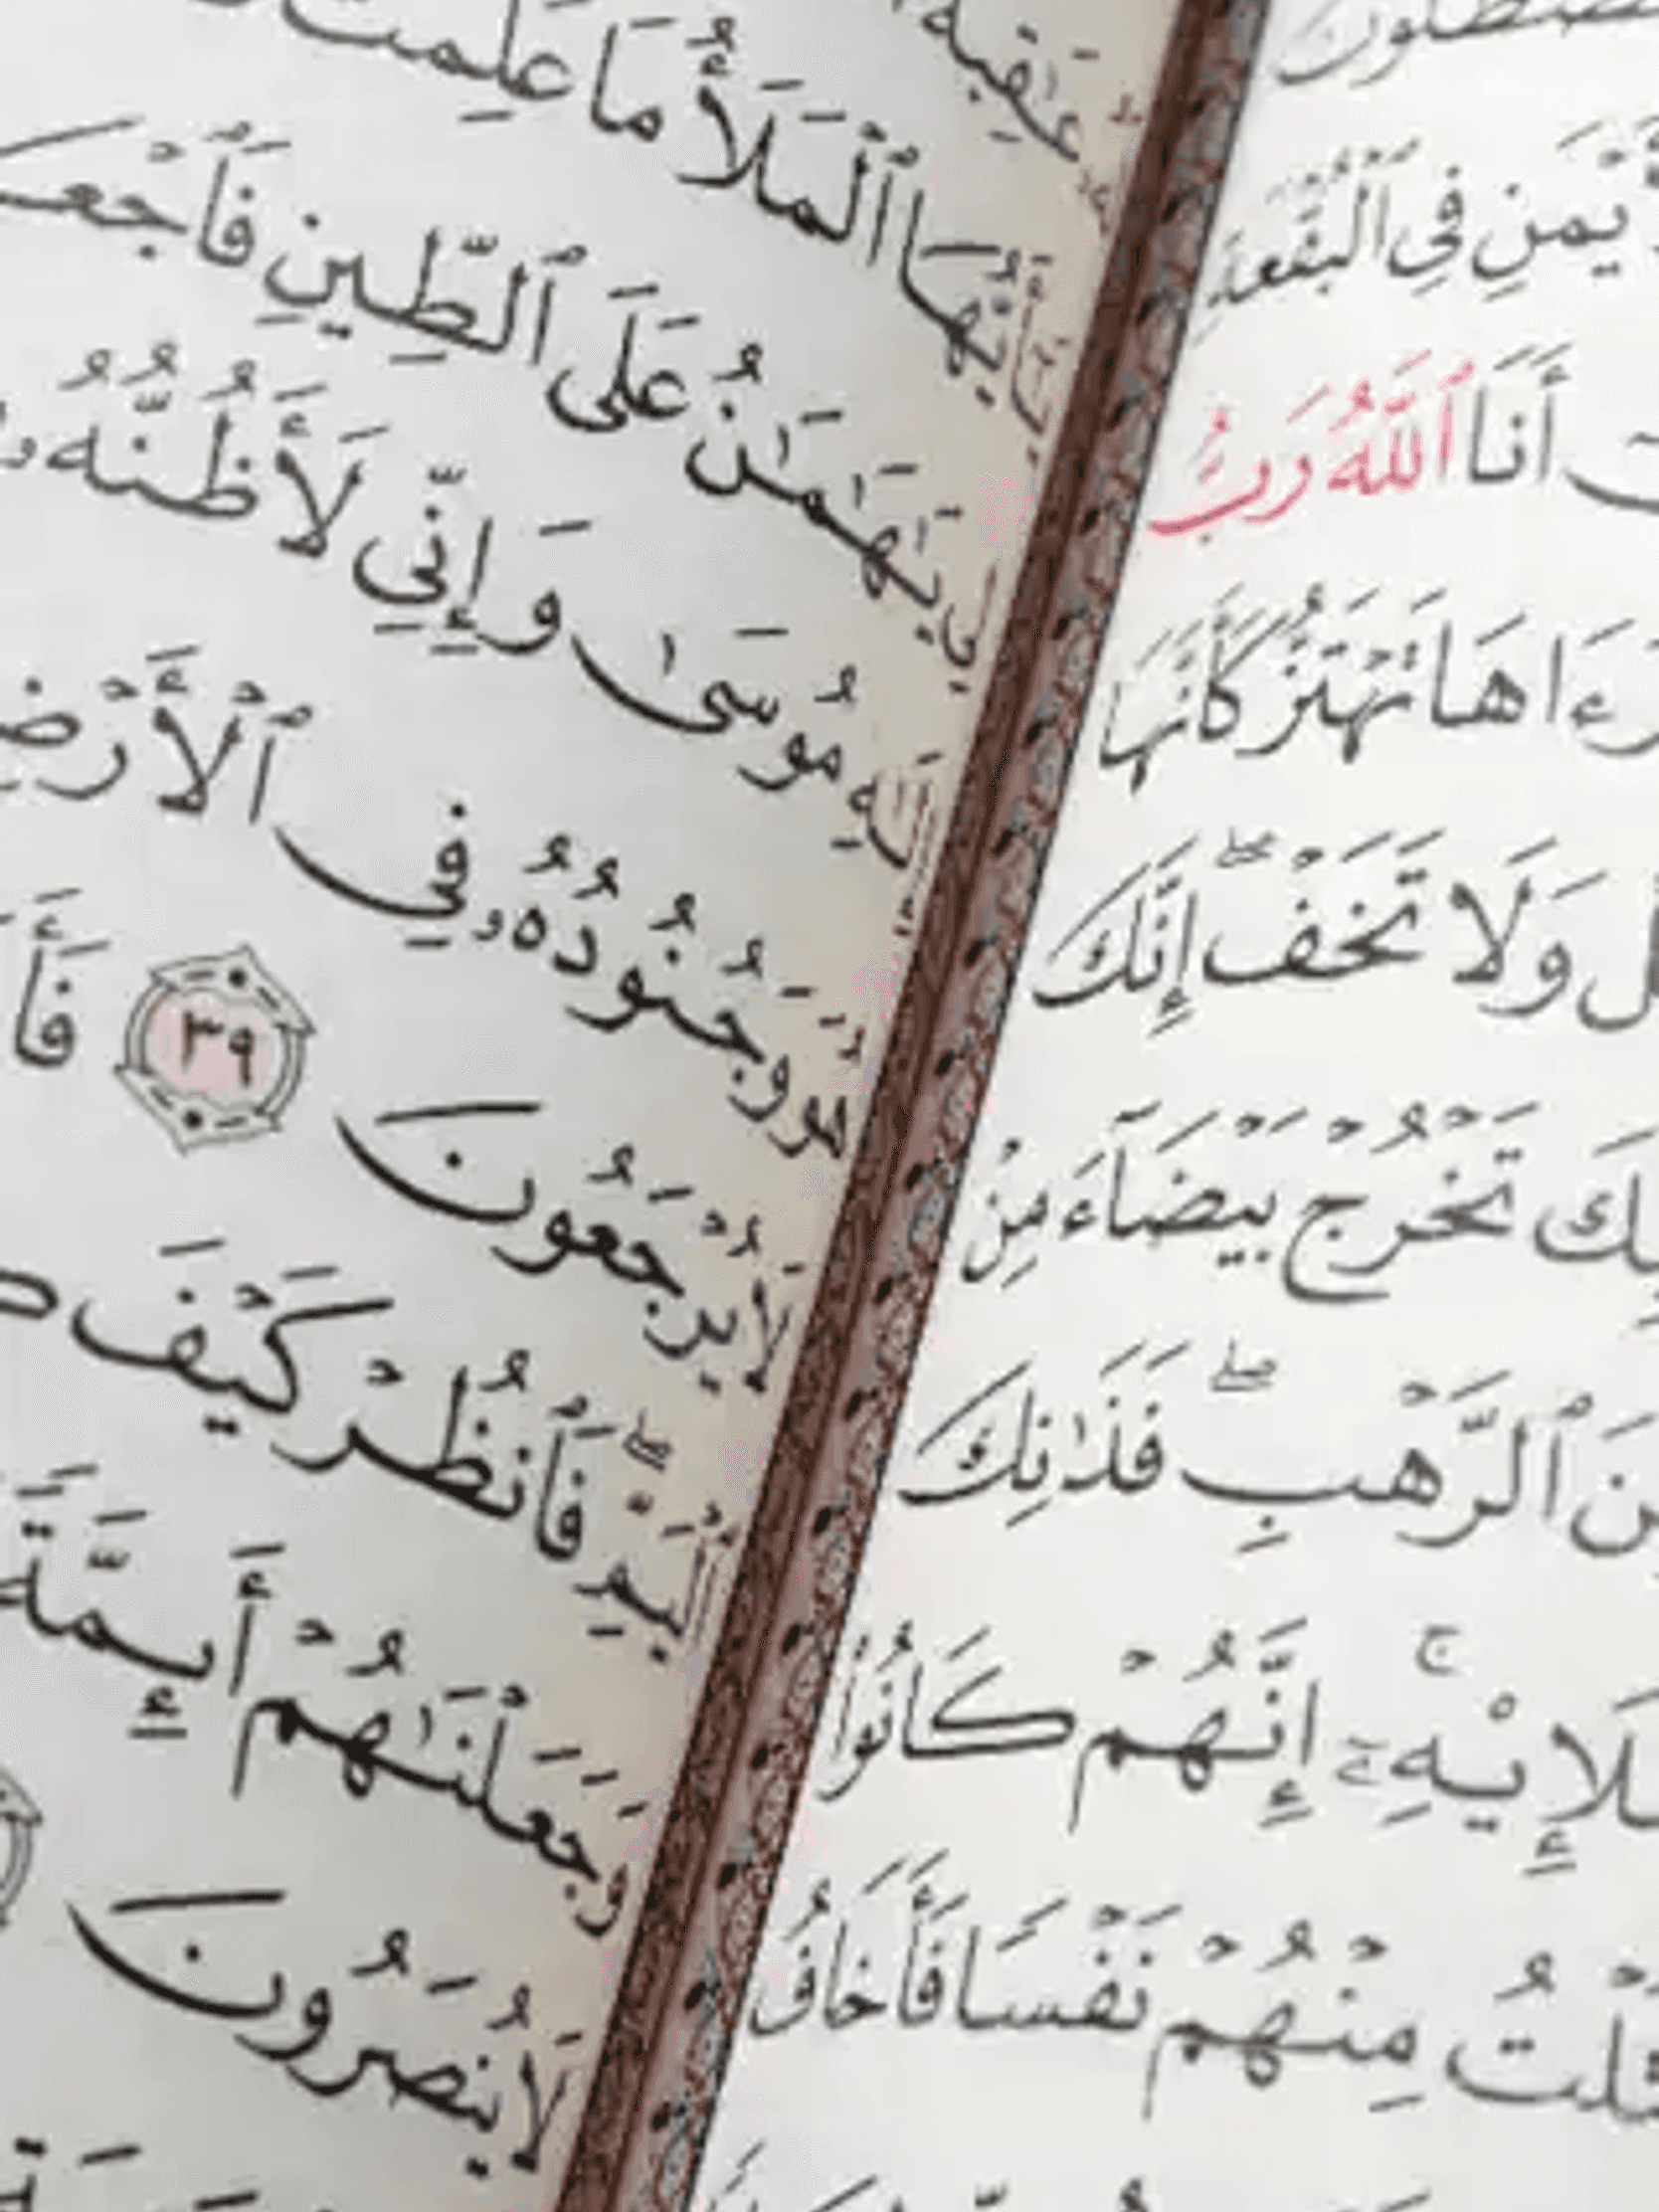 فِي ٱلْبُقْعَةِ
أَنَا ٱللَّهُ رَبُّ
رَءَاهَا تَهْتَزُّ كَأَنَّهَا
وَلَا تَخَفْ ۖ إِنَّكَ
تَخْرُجْ بَيْضَآءَ مِنْ
ٱلرَّهْبِ ۖ فَذَٰنِكَ
إِنَّهُمْ كَانُوا۟
مِنْهُمْ نَفْسًا فَأَخَافُ
عَٰقِبَةُ
ٱلْمَلَأُ مَا عَلِمْتُ
يَٰهَٰمَٰنُ عَلَى ٱلطِّينِ
مُوسَىٰ وَإِنِّي لَأَظُنُّهُۥ
وَجُنُودُهُۥ فِي ٱلْأَرْضِ
لَا يُرْجَعُونَ ٣٩
ٱلْيَمِّ ۖ فَٱنظُرْ كَيْفَ
وَجَعَلْنَٰهُمْ أَئِمَّةً
لَا يُنصَرُونَ